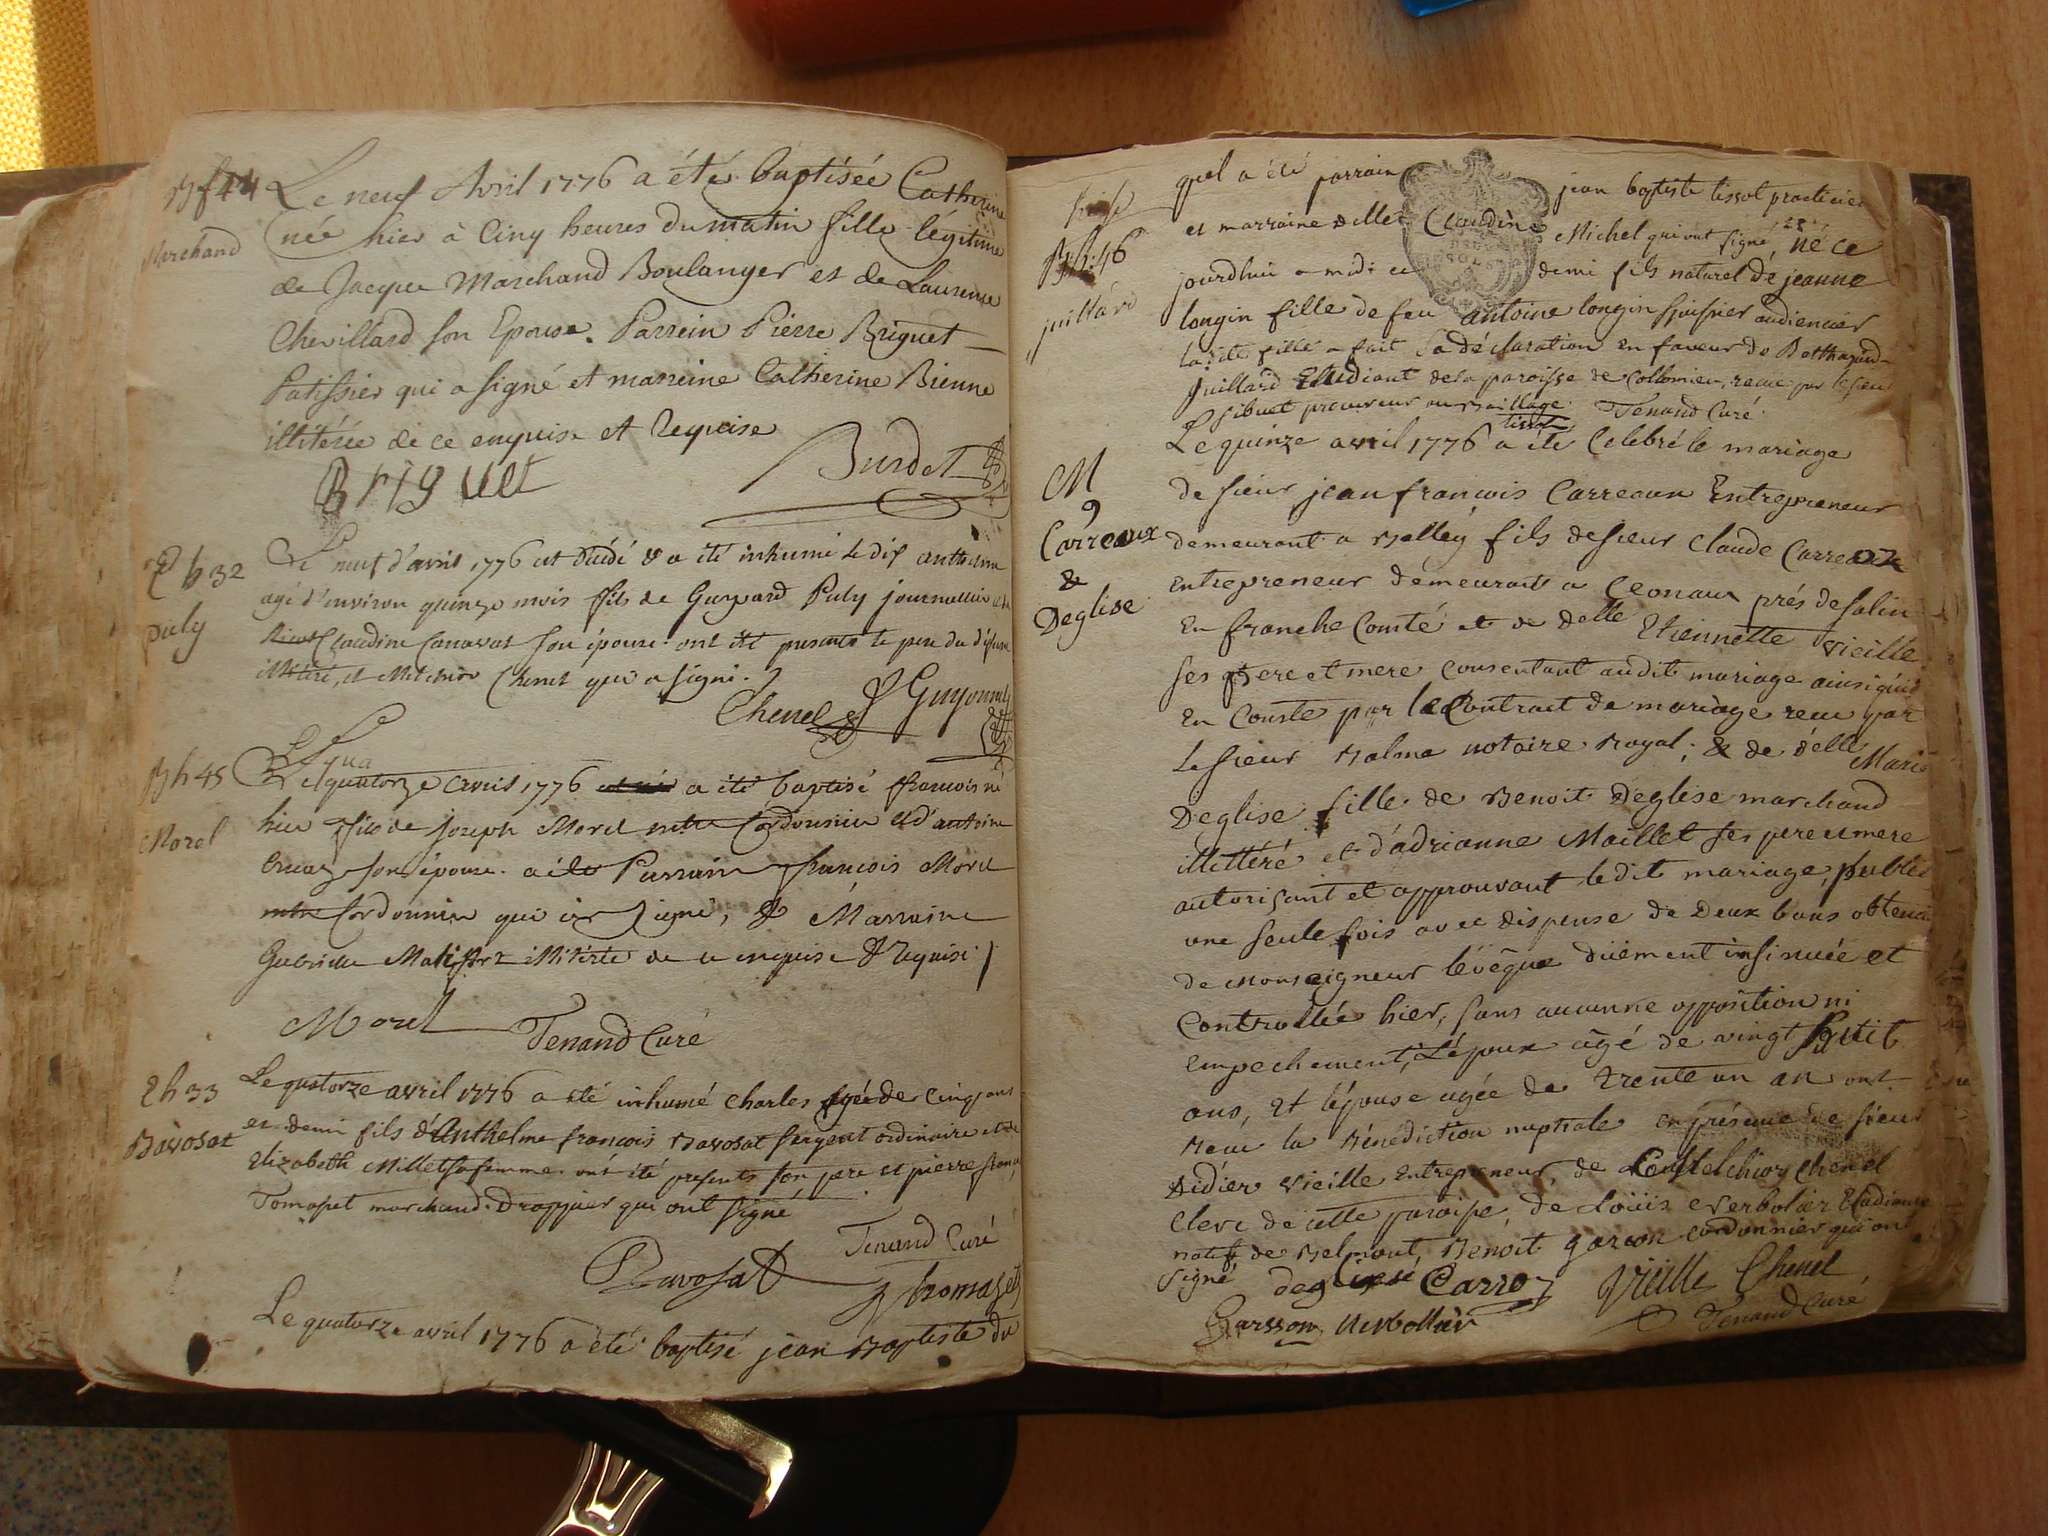 Bf 44
Marchand
Le neuf Avril 1776 a été baptisée Catherine
née hier à Cinq heures du matin fille légitime
de Jacque Marchand Boulanger et de Laurence
Chevillard son Epouse. Parrein Pierre Briguet
Patissier qui a signé et marreine Catherine Bienne
illitérée de ce enquise et Requise
Briguet Burdet
h 32
Puly
Le neuf d'avril 1776 est dédé & a été inhumé le dix anthelme
agé d'environ quinze mois fils de Guspard Puly journallier et de
Claudine Canavat son épouse ont été presents le pere du défunt
illitéré, et Melchior Chenel qui a signé.
Chenel J Guyonnet
Bh 45
Morel
Le quatorze avril 1776 a été baptisé francois né
hier fils de joseph Morel mtre Cordonnier et d'antoine
son épouse. a été Parrain francois Morel
mtre Cordonnier qui a signé, & Marraine
Gabrielle illitérée de ce enquise & requise
Morel Tenand Curé
Eh 33
Bavosat
Le quatorze avril 1776 a été inhumé charles agé de cinq ans
et demi fils d'Anthelme francois Bavosat sergent ordinaire et de
Elizabeth Millet sa femme. ont été presents son pere et pierre
Tomasset marchand Drappier qui ont signé
Bavosat Tenand Curé
thomaset
Le quatorze avril 1776 a été baptisé jean Baptiste du
Bh 46
juillard
quel a été parrain jean baptiste tissot practicien
et marraine dlle Claudine Michel qui ont signé né ce
jourdhui a midi et demi fils naturel de jeanne
longin fille de feu antoine longin huissier audiencier
la dte fille a fait sa déclaration en faveur de
juillard Etudiant de la paroisse de Collomieu, recue par le sieur
Sibuet procureur au Bailliage. Tenand Curé.
tissot
M
9
Carreaux
&
Deglise
Le quinze avril 1776 a été Celebré le mariage
de sieur jean francois Carreaux Entrepreneur
demeurant a Belley fils de sieur Claude Carreaux
Entrepreneur demeurant a Ceonaux prés de salin
En franche Comté et de delle Etiennette vieille
ses pere et mere consentant audit mariage ainsi quil
En Conste par le Contract de mariage recu par
Le sieur Balme notaire Royal; & de delle Marie
Deglise fille de Benoit Deglise marchand
illittéré et d'adrianne Maillet ses pere et mere
autorisant et approuvant ledit mariage, publié
une seule fois avec dispense de Deux bans obtenu
de Monseigneur lévêque düement insinuée et
Controllée hier, sans aucunne opposition ni
empechement, L'époux âgé de vingt huit
ans, et lépouse agée de trente un an ont
recu la Bénédiction nuptiale en présence de sieur
Didier vieille entrepreneur, de Melchior Chenel
Clerc de cette paroisse, de Loüis verbolier Etudiant
natif de Belmont, Benoit garson cordonnier qui ont
signé deglise Carro Vieille Chenel
Garsson verbollier Tenand Curé